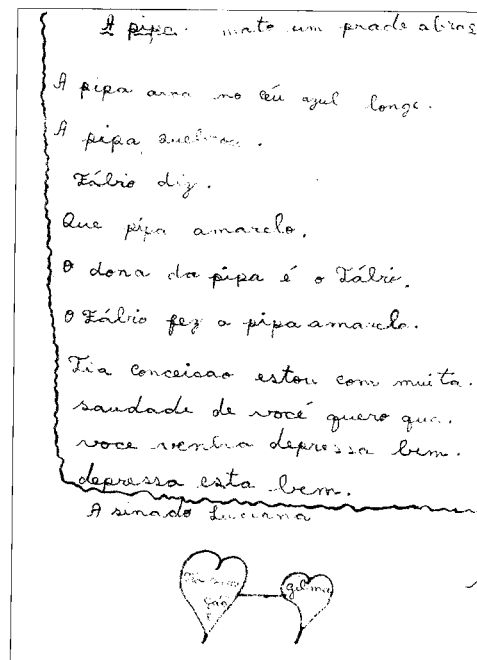 A pipa. mato um prade abras
A pipa no céu azul longe.
A pipa
Fábio diz.
Que pipa amarelo.
O dona da pipa é o Fábio.
O Fábio fez a pipa amarelo.
Tia conceisao estou com muita.
saudade de você quero que.
voce venha depressa bem.
depressa esta bem.
A sinado Luciana
ção